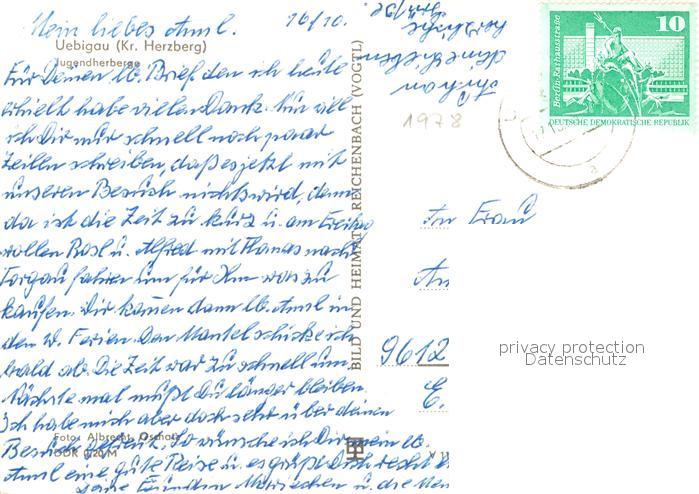 Mein liebes Aml.
16/10.
Uebigau (Kr. Herzberg)
Jugendherberge
Für Deinen lb. Brief den ich heute
erhielt habe vielen Dank. Nun will
ich Dir nur schnell noch paar
Zeilen schreiben, daß es jetzt mit
unseren Besuch nichts wird, denn
da ist die Zeit zu kurz u. am Freitag
wollen Rosl u. Alfred mit Thomas nach
Torgau fahren um für Ihn was zu
kaufen. Wir kommen dann lb. Aml in
den W. Ferien. Den Mantel schicke ich
bald ab. Die Zeit war zu schnell um.
Nächste mal mußt Du länger bleiben.
Ich habe mich aber doch sehr über deinen
Foto: Albrecht, Oschatz
Besuch gefreut. So wünsche ich Dir mein lb.
Aml eine gute Reise u. es grüßt Dich recht
seine u. die
BILD UND HEIMAT REICHENBACH (VOGTL)
1978
10
Berlin, Rathausstraße
DEUTSCHE DEMOKRATISCHE REPUBLIK
a
An Frau
An
9612
E.
privacy protection
Datenschutz